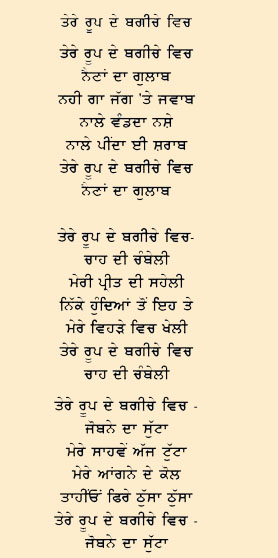 ਤੇਰੇ ਰੂਪ ਦੇ ਬਗੀਚੇ ਵਿਚ
ਤੇਰੇ ਰੂਪ ਦੇ ਬਗੀਚੇ ਵਿਚ
ਨੈਣਾਂ ਦਾ ਗੁਲਾਬ
ਨਹੀ ਗਾ ਜੱਗ 'ਤੇ ਜਵਾਬ
ਨਾਲੇ ਵੰਡਦਾ ਨਸ਼ੇ
ਨਾਲੇ ਪੀਂਦਾ ਈ ਸ਼ਰਾਬ
ਤੇਰੇ ਰੂਪ ਦੇ ਬਗੀਚੇ ਵਿਚ
ਨੈਣਾਂ ਦਾ ਗੁਲਾਬ
ਤੇਰੇ ਰੂਪ ਦੇ ਬਗੀਚੇ ਵਿਚ-
ਚਾਹ ਦੀ ਚੰਬੇਲੀ
ਮੇਰੀ ਪ੍ਰੀਤ ਦੀ ਸਹੇਲੀ
ਨਿੱਕੇ ਹੁੰਦਿਆਂ ਤੋਂ ਇਹ ਤੇ
ਮੇਰੇ ਵਿਹੜੇ ਵਿਚ ਖੇਲੀ
ਤੇਰੇ ਰੂਪ ਦੇ ਬਗੀਚੇ ਵਿਚ
ਚਾਹ ਦੀ ਚੰਬੇਲੀ
ਤੇਰੇ ਰੂਪ ਦੇ ਬਗੀਚੇ ਵਿਚ -
ਜੋਬਨੇ ਦਾ ਸੁੱਟਾ
ਮੇਰੇ ਸਾਹਵੇਂ ਅੱਜ ਟੁੱਟਾ
ਮੇਰੇ ਆਂਗਨੇ ਦੇ ਕੋਲ
ਤਾਹੀਂਓਂ ਫਿਰੇ ਠੁੱਸਾ ਠੁੱਸਾ
ਤੇਰੇ ਰੂਪ ਦੇ ਬਗੀਚੇ ਵਿਚ -
ਜੋਬਨੇ ਦਾ ਸੁੱਟਾ